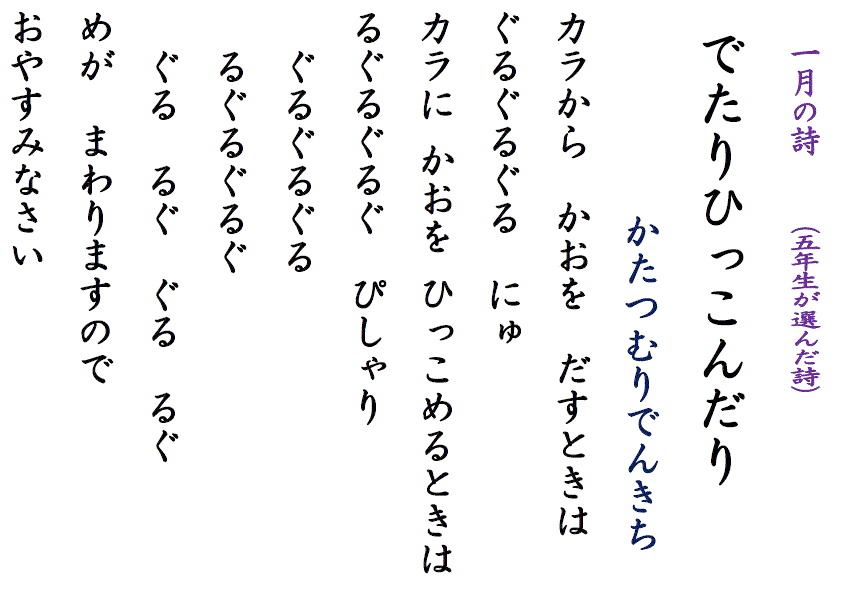 一月の詩　（五年生が選んだ詩）
でたりひっこんだり
かたつむりでんきち
カラから　かおを　だすときは
ぐるぐるぐる　にゅ
カラに　かおを　ひっこめるときは
るぐるぐるぐ　ぴしゃり
ぐるぐるぐる
るぐるぐるぐ
ぐる　るぐ　ぐる　るぐ
めが　まわりますので
おやすみなさい